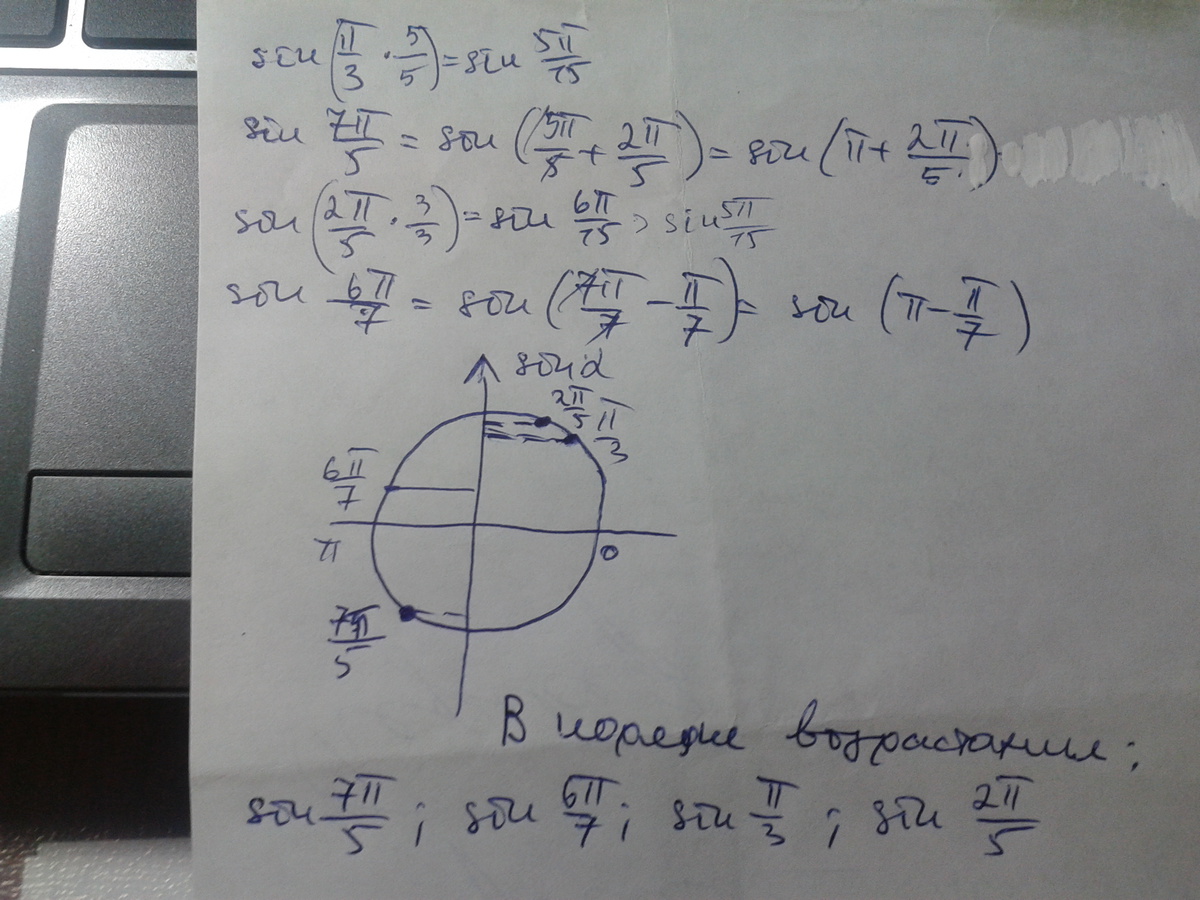 sin(π/3 · 5/5) = sin 5π/15
sin 7π/5 = sin(5π/5 + 2π/5) = sin(π + 2π/5)
sin(2π/5 · 3/3) = sin 6π/15 > sin 5π/15
sin 6π/7 = sin(7π/7 − π/7) = sin(π − π/7)
sin α
2π/5
π/3
6π/7
π
0
7π/5
В порядке возрастания:
sin 7π/5 ; sin 6π/7 ; sin π/3 ; sin 2π/5